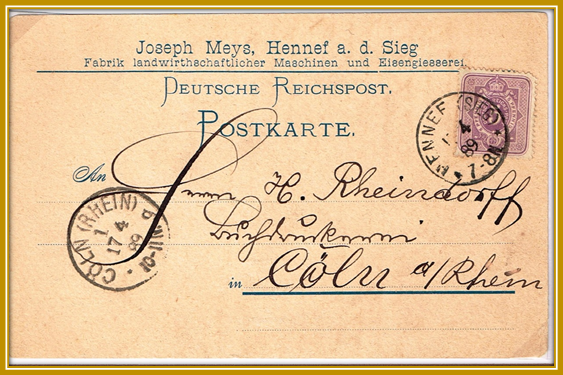 Joseph Meys, Hennef a. d. Sieg
Fabrik landwirthschaftlicher Maschinen und Eisengiesserei.
DEUTSCHE REICHSPOST.
POSTKARTE.
HENNEF (SIEG)
4
89
7-8N
An
Herrn H. Rheindorff
Buchdruckerei
in Cöln a/Rhein
CÖLN (RHEIN)
1
17 4
89
10-11N